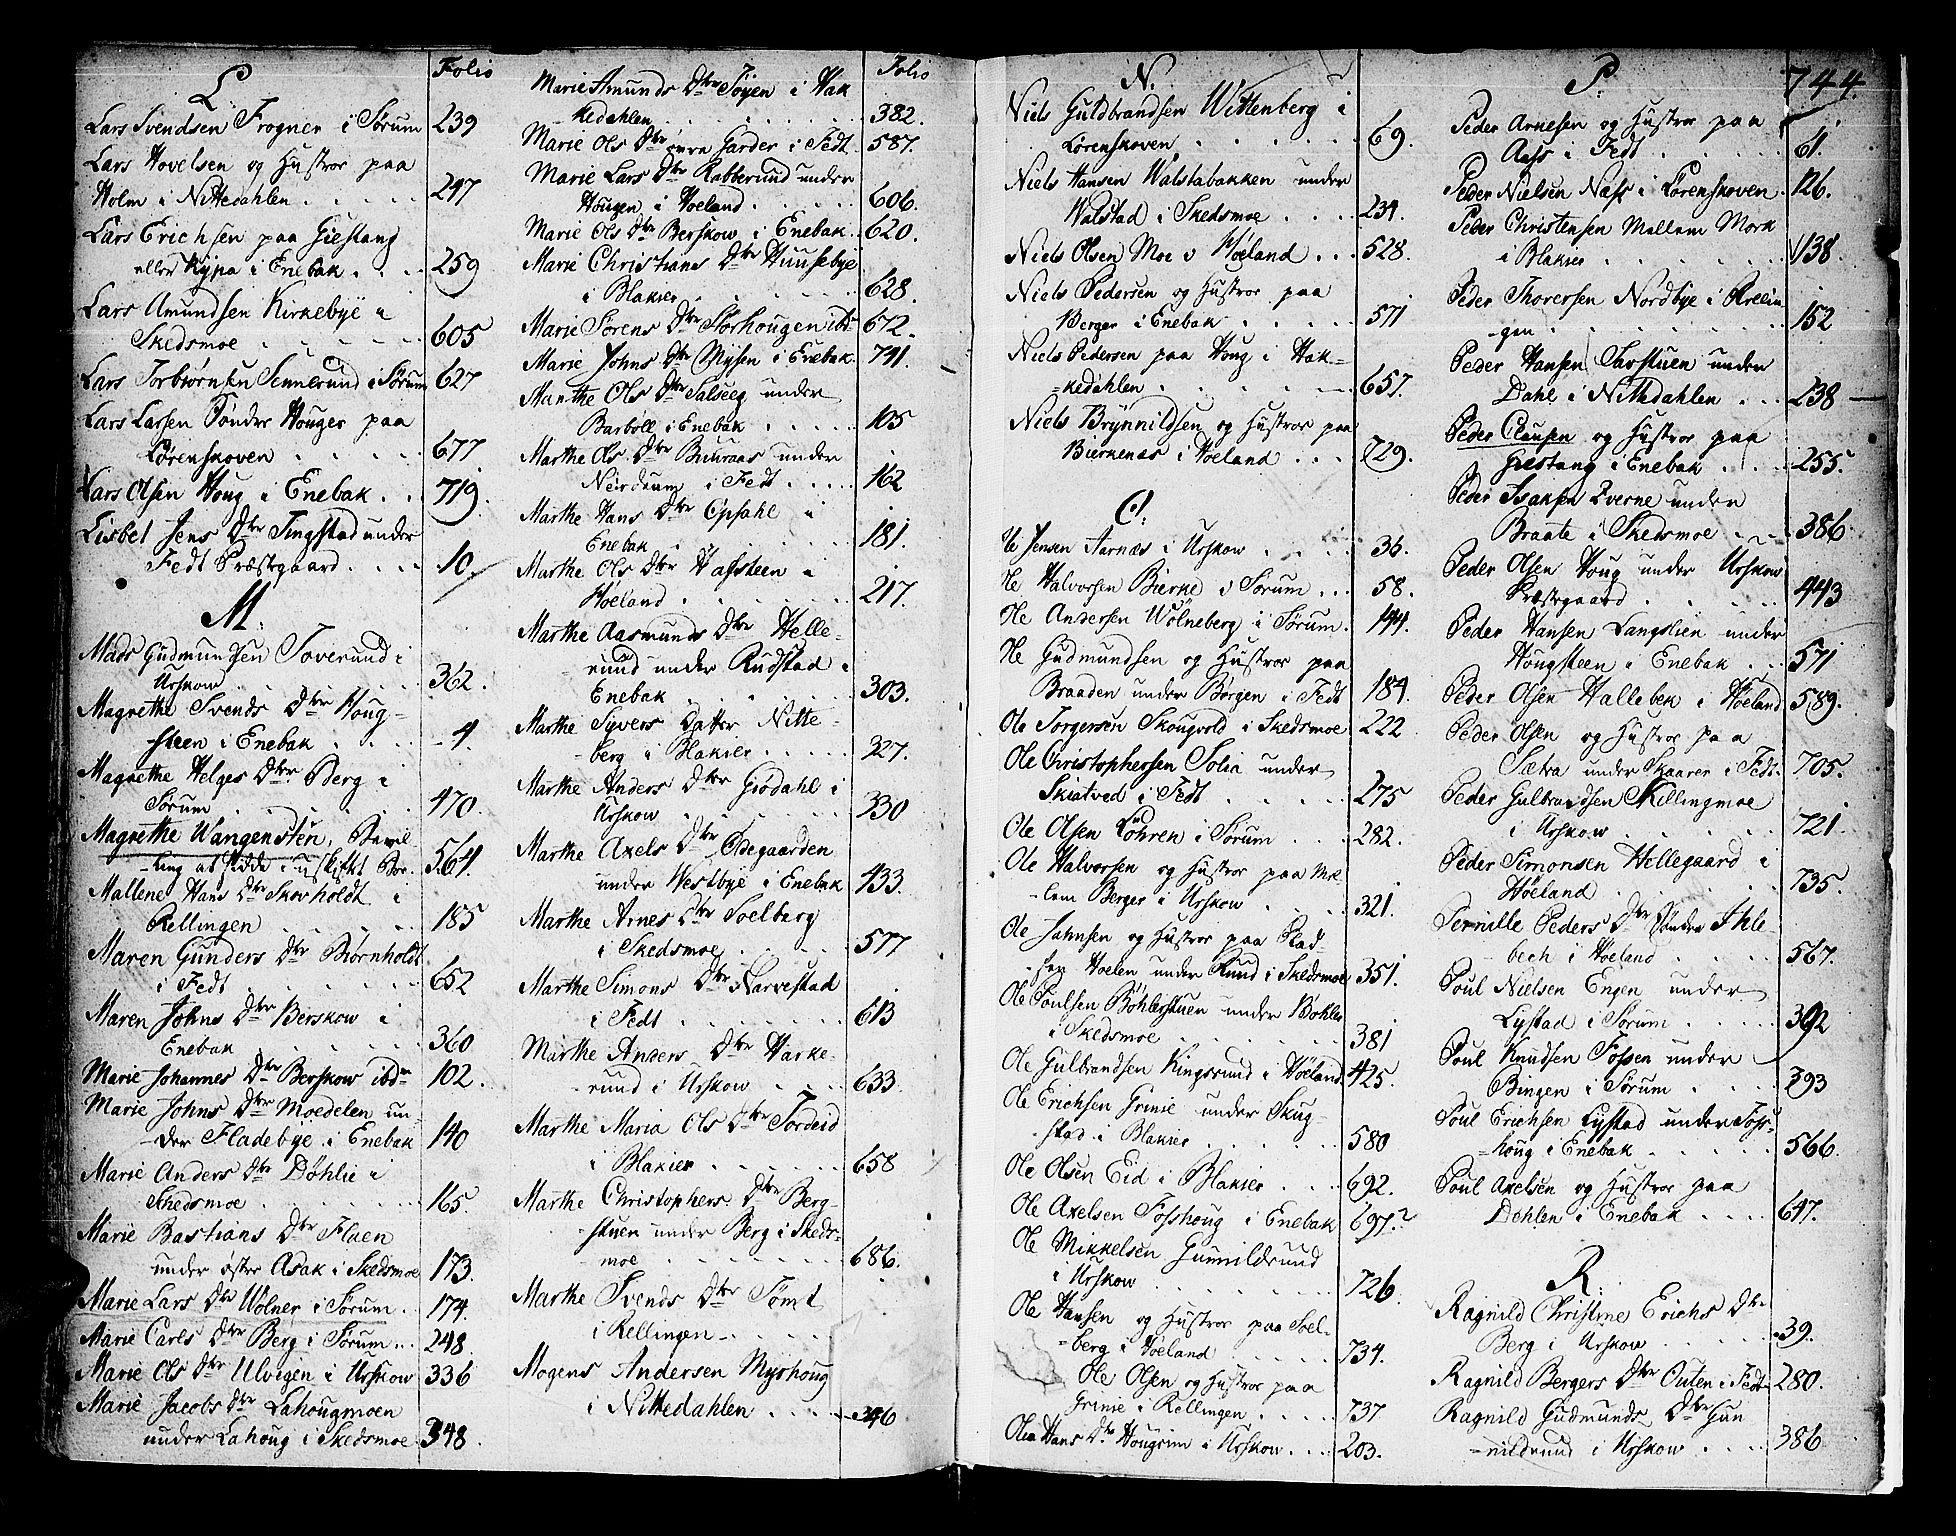 L
Folio
Lars Svendsen Frogner i Sørum 239
Lars Hovelsen og Hustroe paa
Holm i Nittedahlen . . . . . 247
Lars Erichsen paa Giestang
eller Kypa i Enebak . . . . 259
Lars Amundsen Kirkebye i
Skedsmoe . . . . . . 605
Lars Torbiørnsen Sennerund i Sørum 627
Lars Larsen Sønder Houger paa
Lørenskoven . . . . . 677
Lars Olsen Houg i Enebak . . . 719.
Lisbet Jens Dtr Tingstad under
Fedt Præstgaard . . . . 10
M.
Mads Gudmundsen Toverund i
Urskow . . . . . . 362.
Magrethe Svends Dtr Houg-
steen i Enebak . . . . 4.
Magrethe Helges Dtr Berg i
Sørum . . . . . . 470.
Magrethe Wangensten,
564.
Mallene Hans Dtr Skovholdt i
Rellingen . . . . . 185
Maren Gunders Dtr Biørnholdt
i Fedt . . . . . . 652
Maren Johns Dtr Berskow i
Enebak . . . . . . 360
Marie Johannes Dtr Berskow ibdm 102.
Marie Johns Dtr Moedelen un-
der Fladebye i Enebak 140
Marie Anders Dtr Døhlie i
Skedsmoe . . . . . . 165.
Marie Bastians Dtr Flaen
under øster Asak i Skedsmoe 173.
Marie Lars Dtr Wølner i Sørum . . 174.
Marie Carls Dtr Berg i Sørum . . 248.
Marie Ols Dtr Ulvigen i Urskow 336
Marie Jacobs dtr Lahougmoen
under Lahoug i Skedsmoe 348.
Folio
Marie Amunds Dtr Tøyen i Hak
kedahlen . . . . . . 382.
Marie Ols Dtr øvre Garder i Fedt 587.
Marie Lars Dtr Rabberund under
Hougen i Høeland . . . . . 606.
Marie Ols Dtr Berskow i Enebak . . 620.
Marie Christians Dtr Huusebye
i Blakier . . . . . . 628.
Marie Sørens Dtr Størhougen ibd 672.
Marie Johns Dtr Mysen i Enebak 741.
Marthe Ols Dtr Salseeg under
Barbøll i Enebak . . . . . 105
Marthe Ols Dtr Buuraas under
Neirdrum i Fedt . . . . 162
Marthe Hans Dtr Opsahl i
Enebak . . . . . . 181.
Marthe Ols Dtr Hafsteen i
Høeland . . . . . . 217.
Marthe Aasmunds Dtr Helle-
rund under Rudstad i
Enebak . . . . . . 303.
Marthe Syvers Datter Nitte-
berg i Blakier . . . . . 327.
Marthe Anders Dtr Giødahl i
Urskow . . . . . . 330
Marthe Axels Dtr Ødegaarden
under Westbye i Enebak 433.
Marthe Arnes Dtr Soelberg
i Skedsmoe . . . . . 577
Marthe Simons Dtr Narvestad
i Fedt . . . . . . 613
Marthe Anders Dtr Harke-
rund i Urskow . . . . 633.
Marthe Maria Ols Dtr Tordeid
i Blakier . . . . . . 658
Marthe Christophers Dtr Berg-
stuen under Berg i Skeds-
moe . . . . . . 686.
Marthe Svends Dtr Tømt
i Rellingen . . . . .
Mogens Andersen Myrhoug
i Nittedahlen . . . . . 346
N.
Niels Guldbrandsen Wittenberg i
Lørenskoven . . . . . . 69.
Niels Hansen Walstabakken under
Walstad i Skedsmoe . . . . 234.
Niels Olsen Moe i Høeland . . . 528.
Niels Pedersen og Hustroe paa
Berger i Enebak . . . . . 571
Niels Pedersen paa Houg i Hak-
kedahlen . . . . . . 657.
Niels Brynnildsen og Hustroe paa
Bierkenæs i Høeland . . . 729.
O.
Ole Jensen Aarnæs i Urskow . . . . 36.
Ole Halvorsen Bierke i Sørum . . . 58.
Ole Andersen Wølneberg i Sørum . 144.
Ole Gudmundsen og Hustroe paa
Braaden under Børgen i Fedt 184.
Ole Torgersen Skougvold i Skedsmoe 222
Ole Christophersen Solia under
Skiatved i Fedt . . . . . 275
Ole Olsen Løhren i Sørum . . . . 282.
Ole Halvorsen og Hustroe paa Mel-
lem Berger i Urskow . . . . 321.
Ole Johnsen og Hustroe paa Stad-
Hoelen under Ruud i Skedsmoe 351.
Ole Poulsen Bøhlerstuen under Bøhler
i Skedsmoe . . . . . . 381
Ole Gulbrandsen Kingsrund i Høeland 425.
Ole Erichsen Grinie under Skug-
stad i Blakier . . . . . 580
Ole Olsen Eid i Blakier . . . 692.
Ole Axelsen Fosshoug i Enebak 697.
Ole Mikkelsen Gunnildrund
i Urskow . . . . . . 726.
Ole Hansen og Hustroe paa Soel-
berg i Høeland . . . . . 734.
Ole Olsen og Hustroe paa
Grinie i Rellingen . . . . 737
Olea Hans Dtr Hougrim i Urskow . . . 203.
P.
744.
Peder Arnesen og Hustroe paa
Aass i Fedt . . . . . 61.
Peder Nielsen Næss i Lørenskoven . 126.
Peder Christensen Mellem Mork
i Blakier . . . . . . 138.
Peder Thorersen Nordbye i Rellin-
gen . . . . . . 152
Peder Hansen Savstuen under
Dahl i Nittedahlen . . . 238
Peder Clausen og Hustroe paa
Giestang i Enebak . . . . 255.
Peder Isaksen Qverne under
Braate i Skedsmoe . . . 386.
Peder Olsen Houg under Urskow
Præstgaard . . . . . 443
Peder Hansen Langslien under
Hougsteen i Enebak . . . 571
Peder Olsen Hallebek i Høeland 589.
Peder Olsen og Hustroe paa
Sætra under Skaarer i Fedt 705.
Peder Gulbrandsen Killingmoe
i Urskow . . . . . . 721.
Peder Simonsen Hellegaard i
Høeland . . . . . . 735.
Pernille Peders Dtr Sønder Ihle-
bech i Høeland . . . . . 567.
Poul Nielsen Engen under
Lystad i Sørum . . . . . 392
Poul Knudsen Fossen under
Bingen i Sørum . . . . 393
Poul Erichsen Lystad under Foss-
houg i Enebak . . . . . 566.
Poul Axelsen og Hustroe paa
Dahlen i Enebak . . . . 647.
R.
Ragnild Christine Erichs Dtr
Berg i Urskow . . . . . 39.
Ragnild Bergers Dtr Outen i Fedt 280.
Ragnild Gudmunds Dtr Gun
nildrund i Urskow . . . . 386